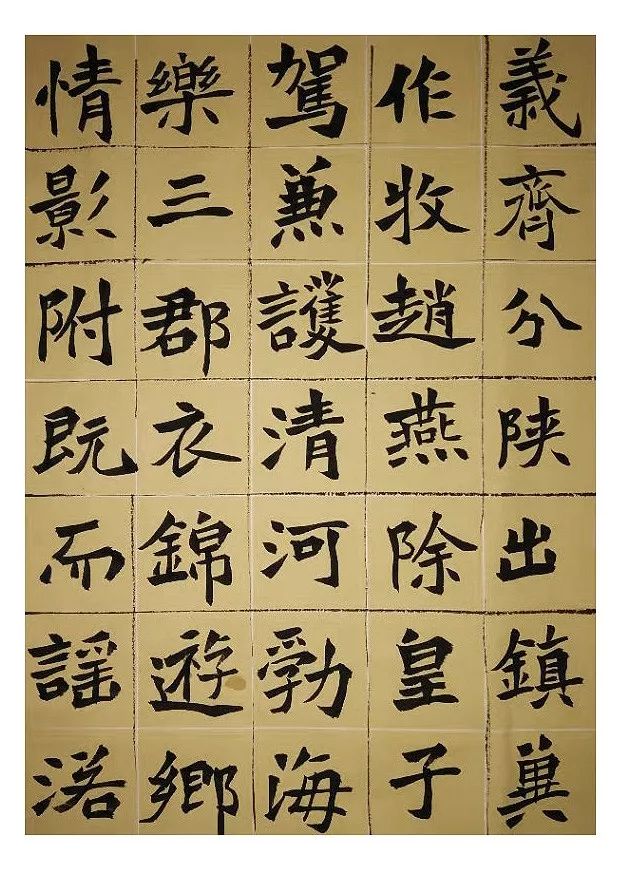 義齊分陕出鎮冀
作牧趙燕除皇子
駕兼護清河勃海
樂三郡衣錦遊鄉
情影附既而謠渃